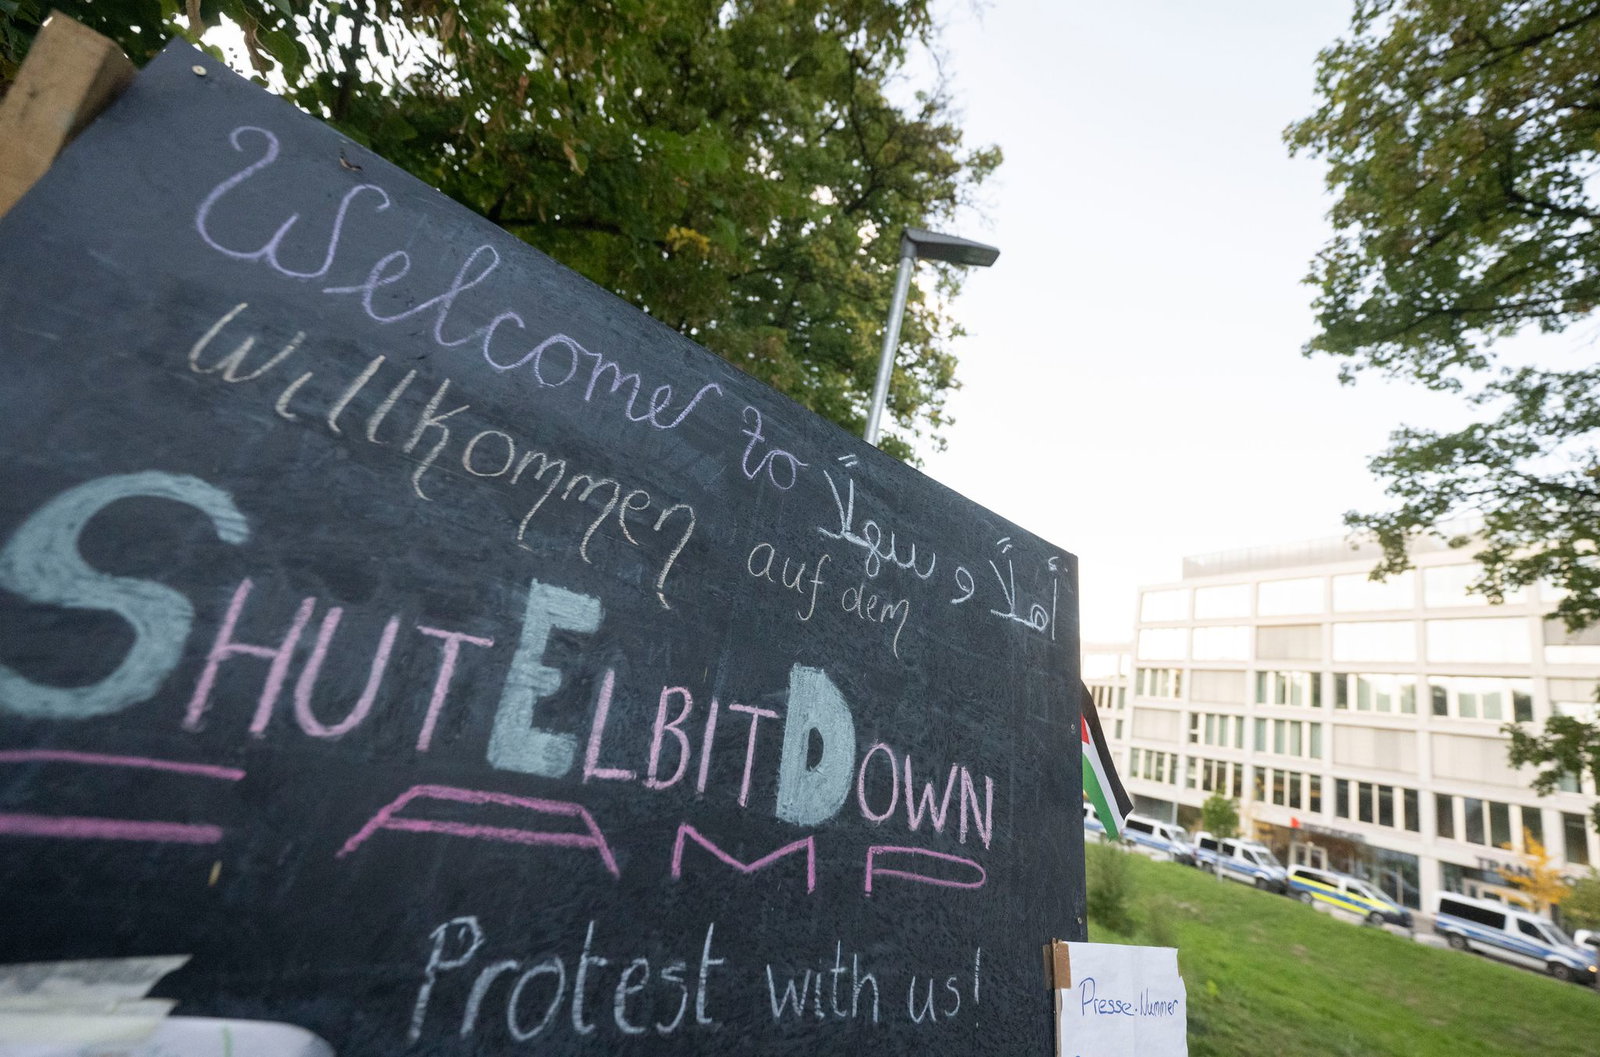 Welcome to
أهلاً و سهلاً
Willkommen auf dem
SHUTELBITDOWN
CAMP
Protest with us!
Presse-Nummer